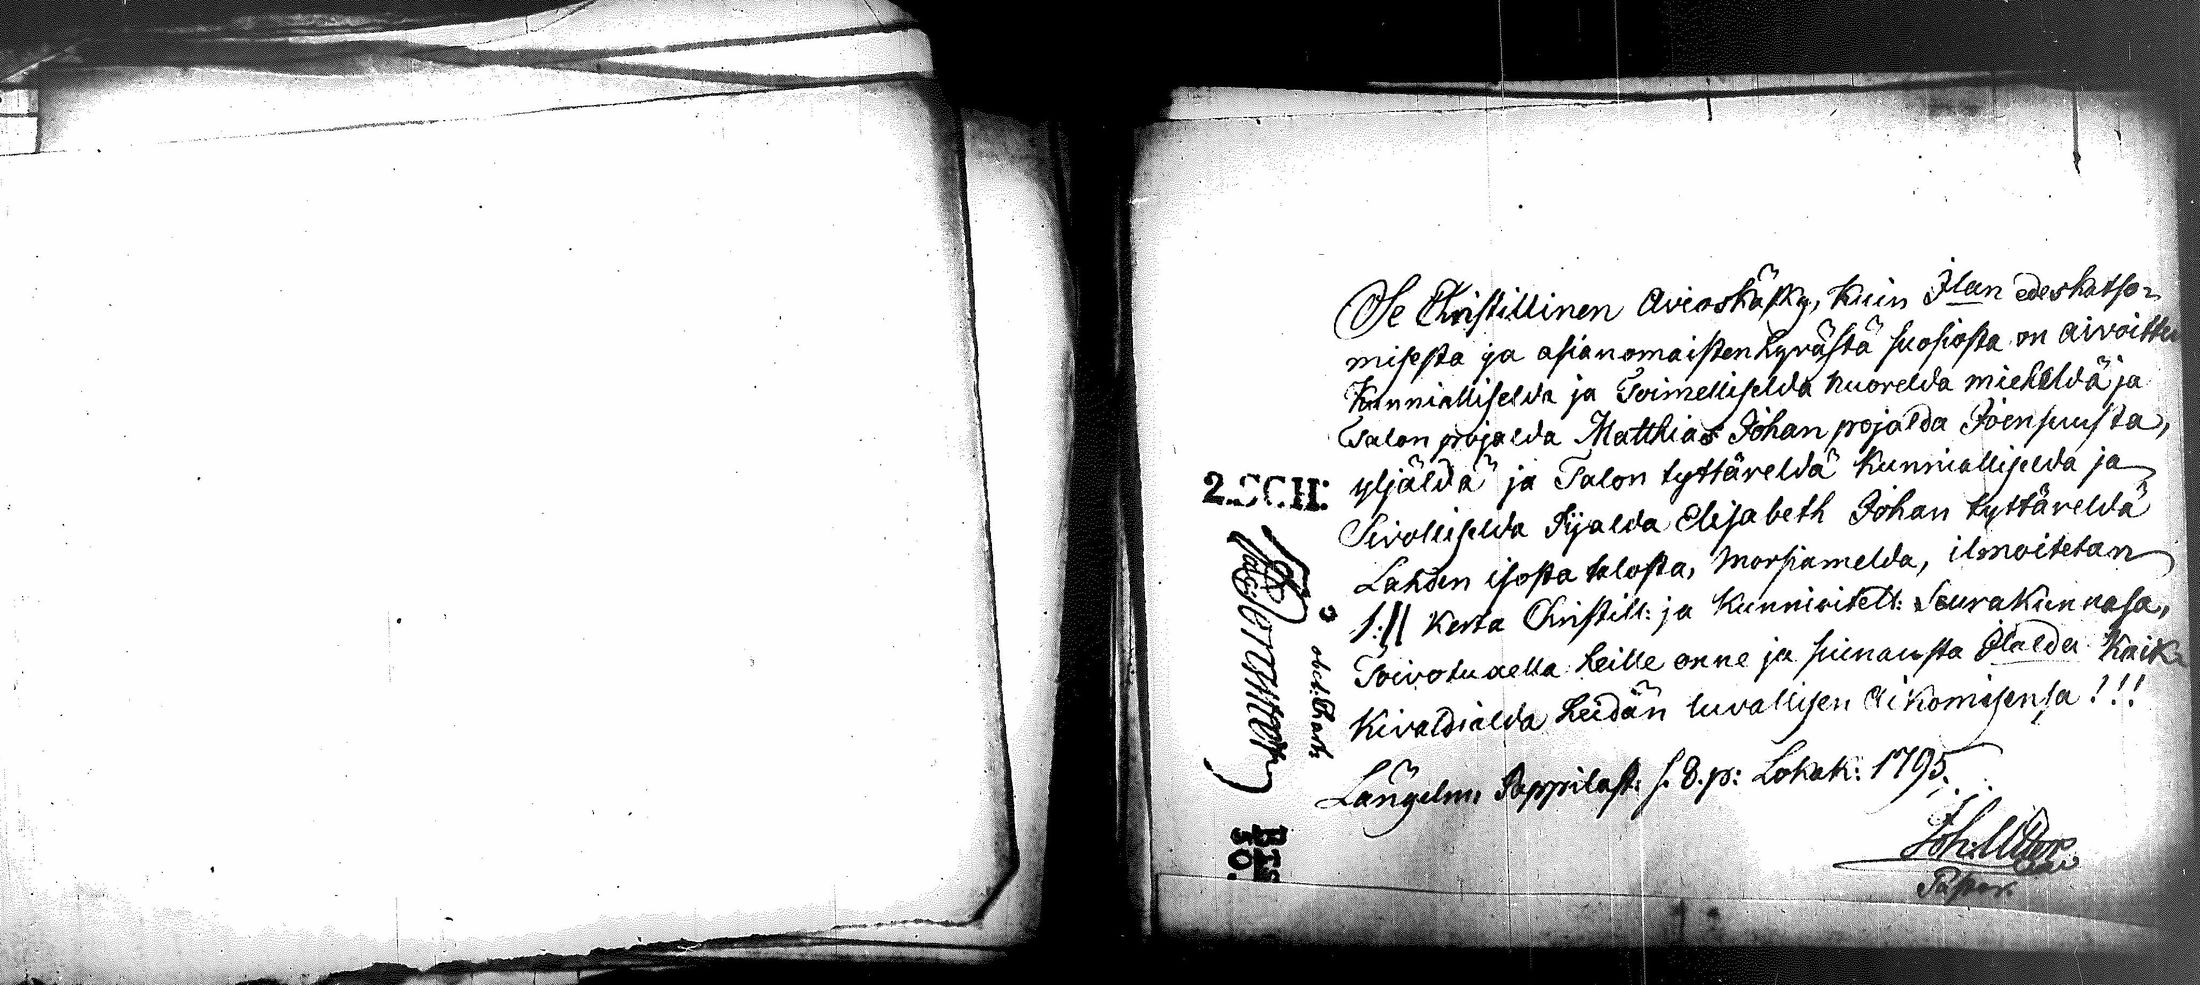 Se Christillinen Avioskäsky, kuin Jlan edeskatso-
misesta ja asianomaisten hyvästä suosiosta on aivoittu
Kunnialliselda ja Toimelliselda nuorelda mieheldä ja
Talon pojalda Matthias Johan pojalda Joensuusta,
yljäldä ja Talon tyttäreldä kunnialliselda ja
Sivolliselda Pijalda Elisabeth Johan tyttäreldä
Lahden isosta talosta, morsiamelda, ilmoitetan
1:|| kerta Christill: ja Kunnioitett: Seurakunnasa,
Toivotuxella heille onne ja siunausta Jlalda Kaik-
kivaldialda heidän luvallisen aikomisensa!!!
Längelm: Pappilast: 8. p: Lokak: 1795.
Joh:
Pastor.
2.SCH:
obet: Chart: